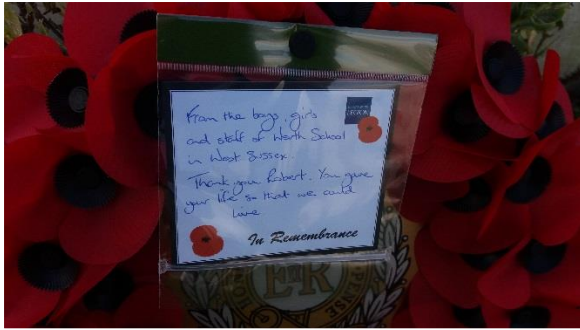 From the boys, girls
and staff of Worth School
in West Sussex.
Thank you Robert. You gave
your life so that we could
love
In Remembrance
PENSE